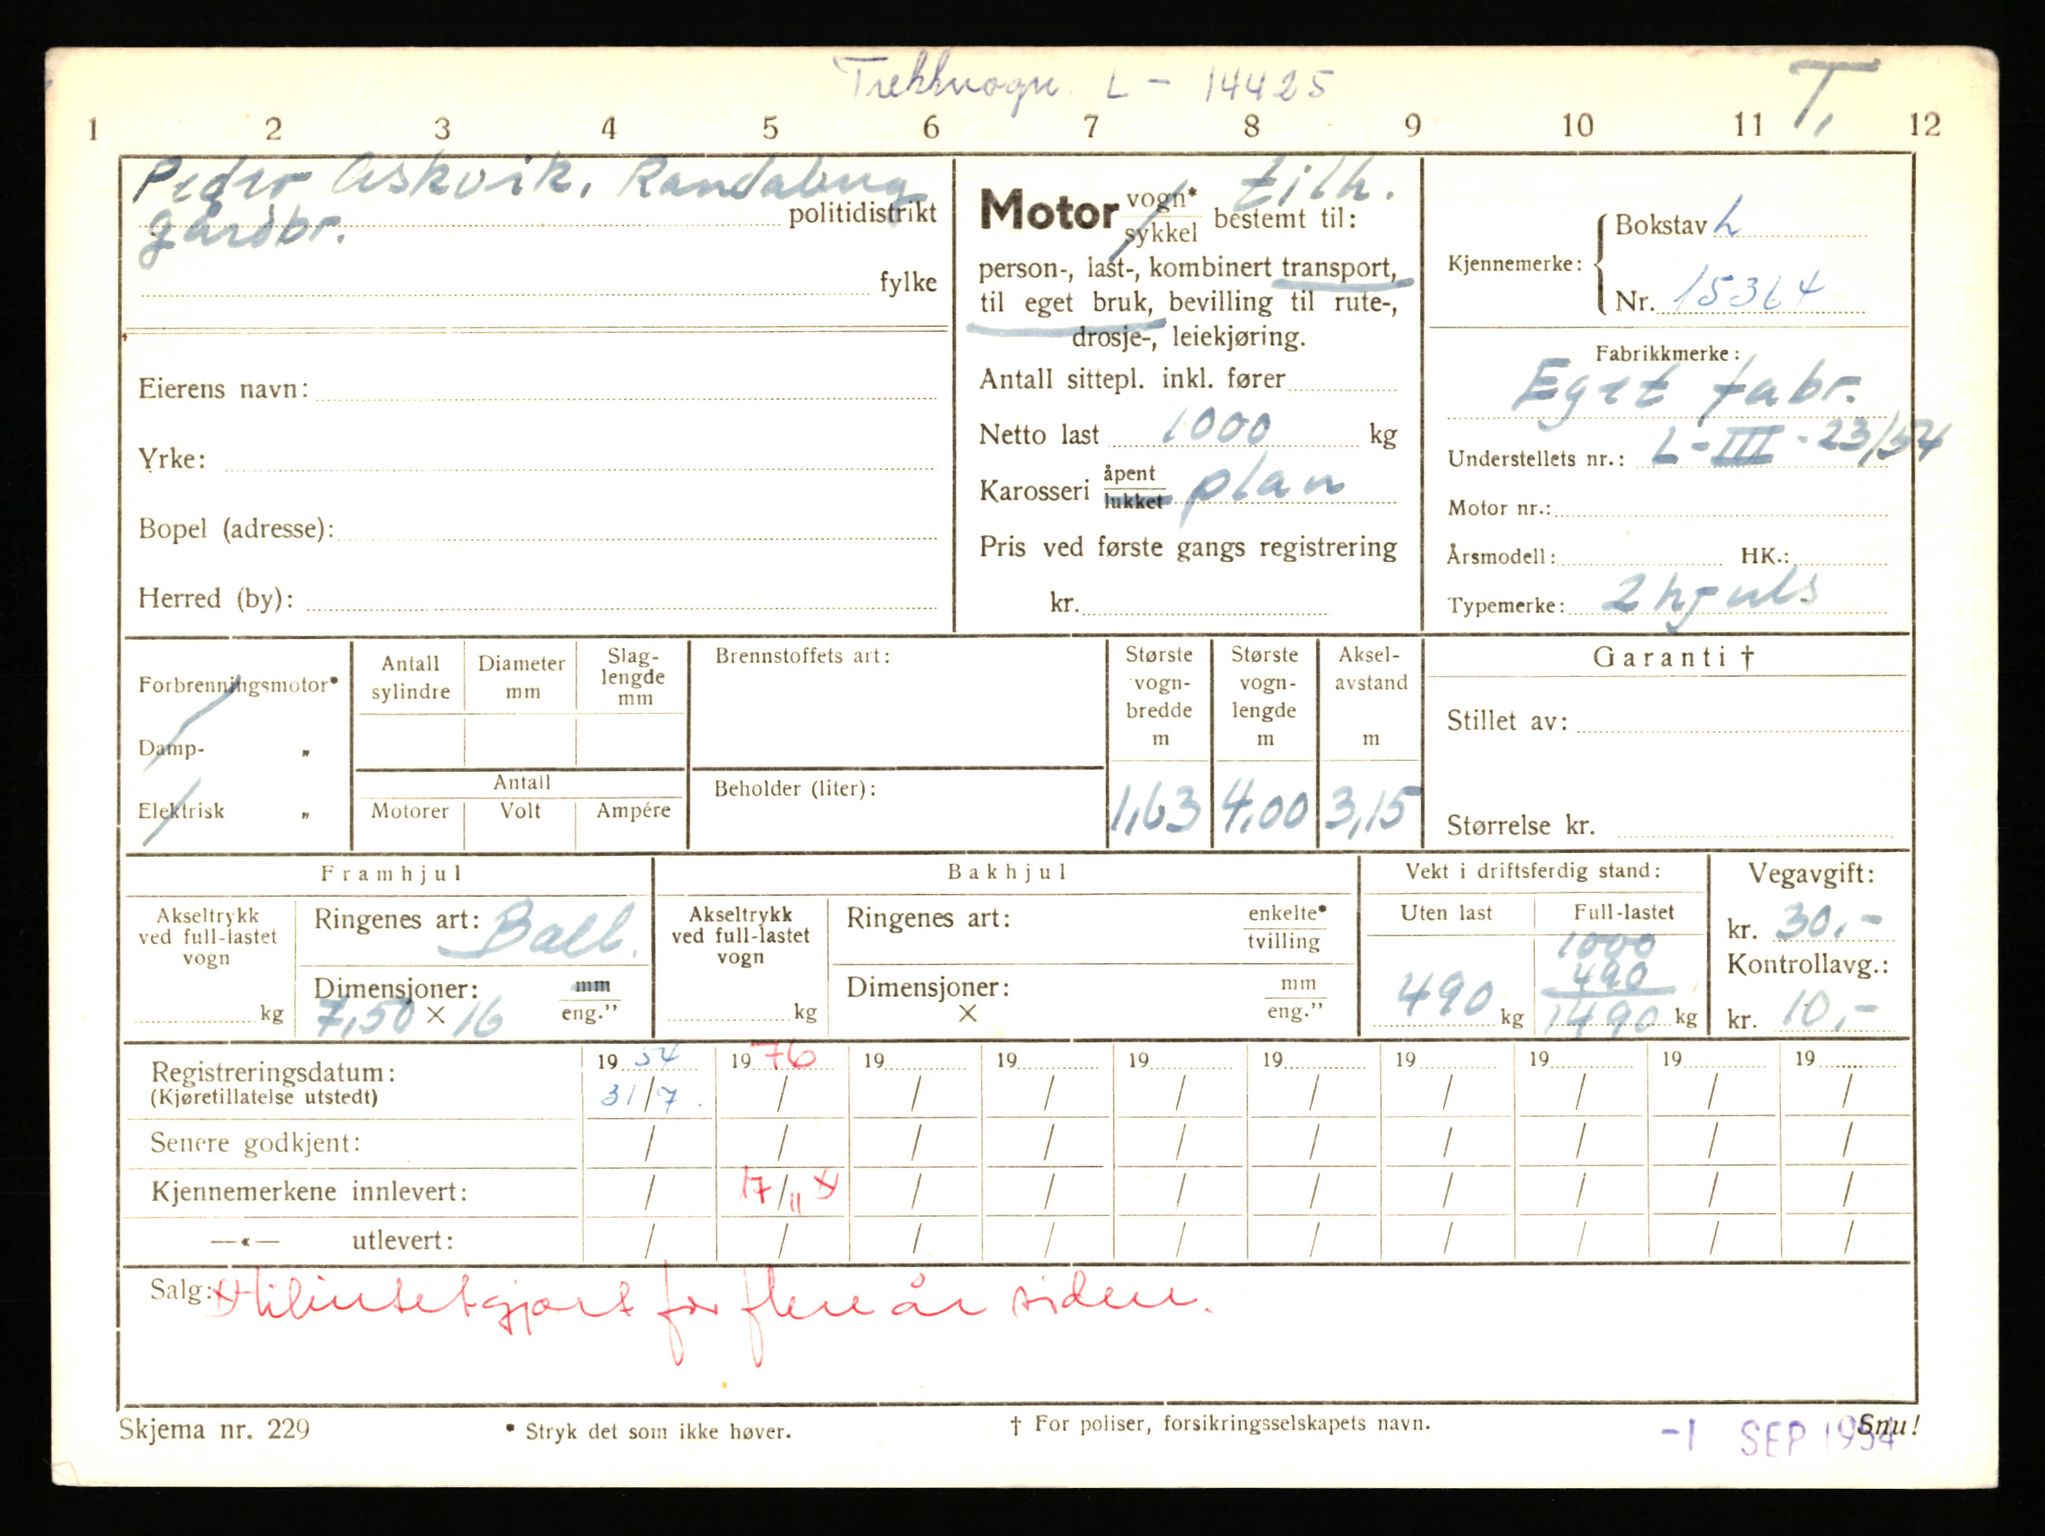 Trekkvogn L - 14425
T,
1 2 3 4 5 6 7 8 9 10 11 12
Peder Askvik, Randaberg
politidistrikt
gårdbr.
fylke
Eierens navn:
Yrke:
Bopel (adresse):
Herred (by):
Motor vogn* / sykkel bestemt til: tilh.
person-, last-, kombinert transport,
til eget bruk, bevilling til rute-,
drosje-, leiekjøring.
Antall sittepl. inkl. fører
Netto last 1000 kg
Karosseri åpent / lukket plan
Pris ved første gangs registrering
kr.
Kjennemerke: Bokstav L
Nr. 15364
Fabrikkmerke:
Eget fabr.
Understellets nr.: L-III-23/54
Motor nr.:
Årsmodell: HK.:
Typemerke: 2 hjuls
Forbrenningsmotor*
Damp- „
Elektrisk „
Antall sylindre
Diameter mm
Slaglengde mm
Antall
Motorer Volt Ampére
Brennstoffets art:
Beholder (liter):
Største vogn-bredde m
1,63
Største vogn-lengde m
4,00
Aksel-avstand m
3,15
Garanti †
Stillet av:
Størrelse kr.
Framhjul
Akseltrykk ved full-lastet vogn
kg
Ringenes art: Ball.
Dimensjoner: mm / eng.”
7,50 × 16
Bakhjul
Akseltrykk ved full-lastet vogn
kg
Ringenes art: enkelte* / tvilling
Dimensjoner: mm / eng.”
×
Vekt i driftsferdig stand:
Uten last
490 kg
Full-lastet
1000
490
1490 kg
Vegavgift:
kr. 30,-
Kontrollavg.:
kr. 10,-
Registreringsdatum: 19 54 19 76 19 19 19 19 19 19 19 19
(Kjøretillatelse utstedt) 31/7. / / / / / / / / /
Senere godkjent: / / / / / / / / / /
Kjennemerkene innlevert: / 17/11 x / / / / / / / /
—«— utlevert: / / / / / / / / / /
Salg: x tilintetgjort for flere år siden.
Skjema nr. 229
* Stryk det som ikke høver.
† For poliser, forsikringsselskapets navn.
Snu!
-1 SEP 1954